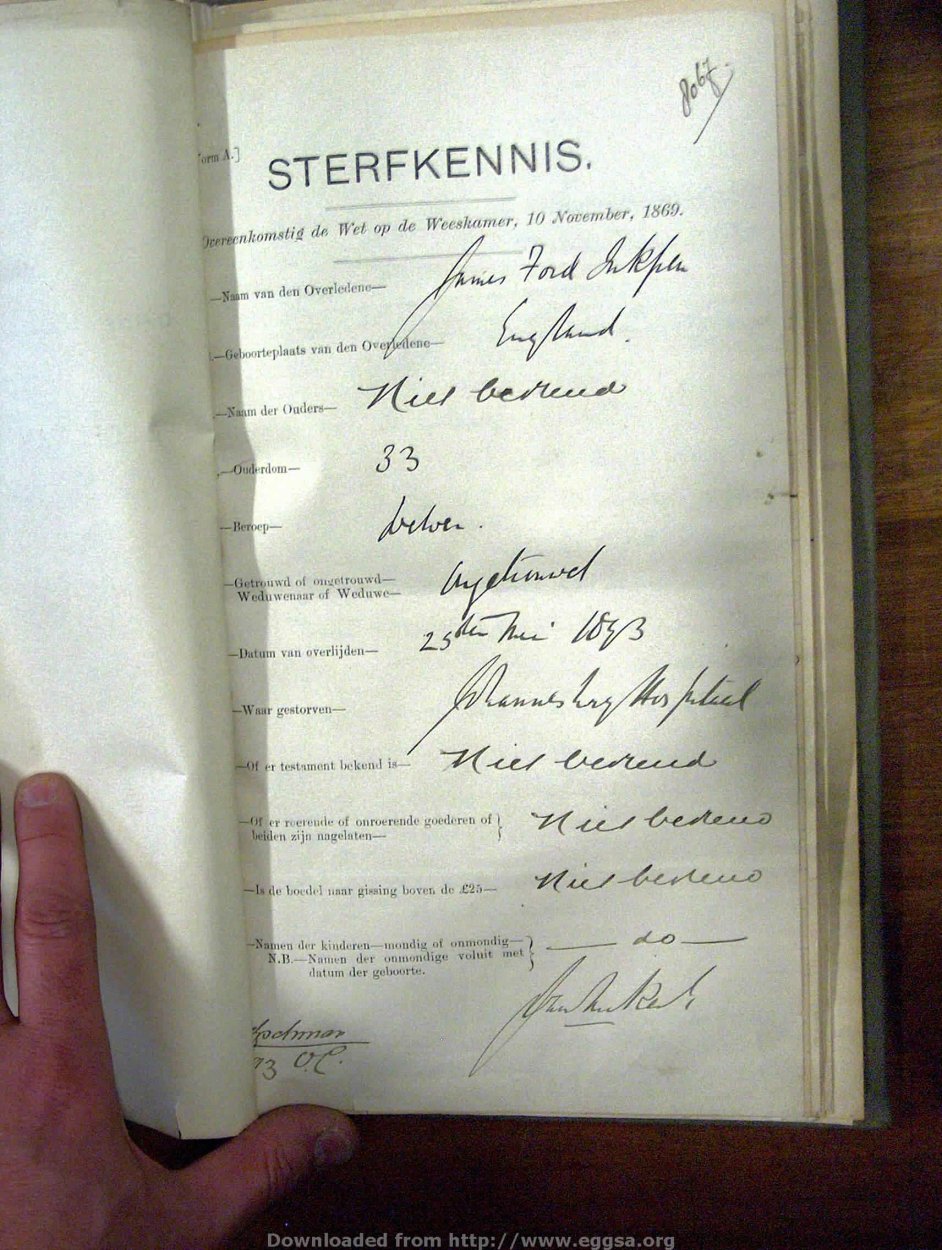 8067.
orm A.]
STERFKENNIS.
Overeenkomstig de Wet op de Weeskamer, 10 November, 1869.
—Naam van den Overledene— James Ford Inkpen
.—Geboorteplaats van den Overledene— England.
—Naam der Ouders— Niet bekend
.—Ouderdom— 33
—Beroep— delver.
—Getrouwd of ongetrouwd— Ongetrouwd
Weduwenaar of Weduwe—
—Datum van overlijden— 25sten Mei 1893
—Waar gestorven— Johannesburg Hospitaal
—Of er testament bekend is— Niet bekend
—Of er roerende of onroerende goederen of } Niet bekend
beiden zijn nagelaten—
—Is de boedel naar gissing boven de £25— Niet bekend
—Namen der kinderen—mondig of onmondig— } — do —
N.B.—Namen der onmondige voluit met
datum der geboorte.
93 O.C.
Downloaded from http://www.eggsa.org